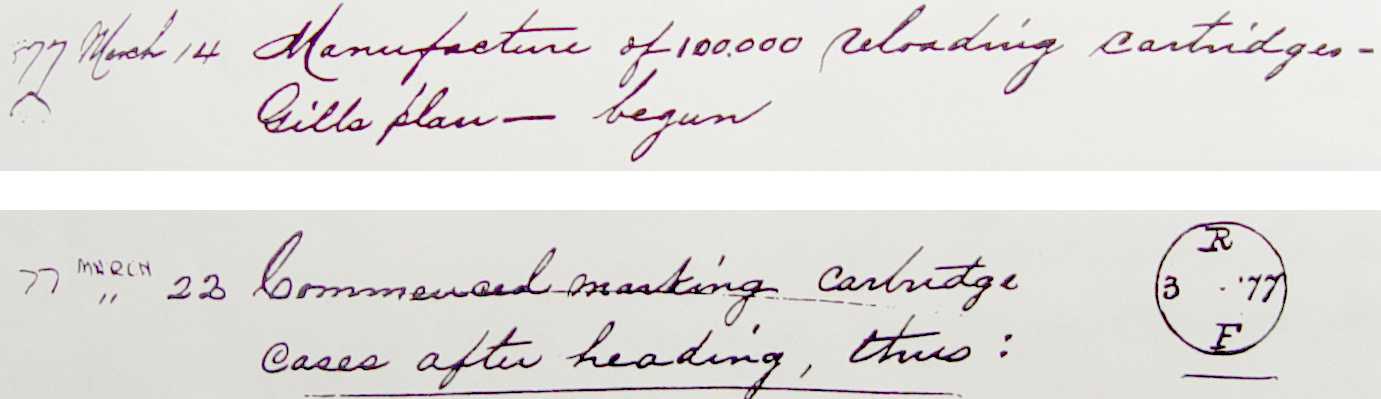 '77 March 14 Manufacture of 100.000 reloading cartridges –
Gills plan — begun
77 MARCH 23 Commenced marking cartridge
" cases after heading, thus :
R
3 '77
F